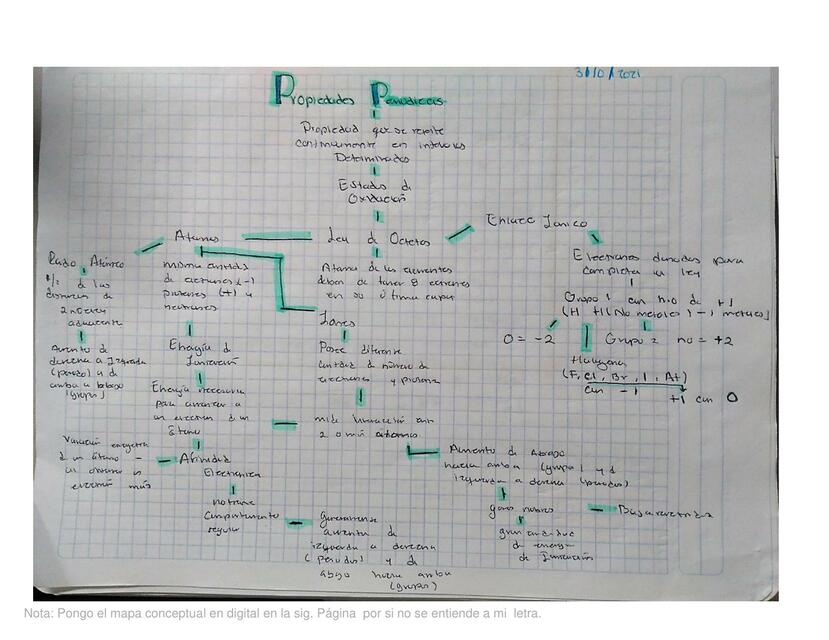 31/10/2021
Propiedades Periodicas
Propiedad que se repite
continuamente en intervalos
Determinados
Estados de
Oxidación
Ley de Octetos
Atomos
Enlace Ionico
Radio Atómico
1/2 de las
distancia de
2 nucleos
Aumento de
derecha a Izquierda
(periodo) y de
arriba a abajo
(grupo)
misma cantidad
de electrones (-)
protones (+) y
neutrones
Energía de
Ionización
Energía necesaria
para arrancar a
un electron de un
átomo
Afinidad
Electronica
Variación energetica
d un átomo
no tiene
Comportamiento
regular
Generalmente
aumenta de
izquierda a derecha
(periodos) y de
abajo hacia arriba
(grupos)
Atomos de los elementos
deben de tener 8 electrones
en su última capa
Iones
Posee diferente
cantidad de número de
electrones y protones
mide Interacción
2 o más atomos
Aumento de Abajo
hacia arriba (grupo) y d
izquierda a derecha (periodos)
gases nobles
gran cantidad
de energia
de Ionización
Electrones donados para
completar la ley
Grupo 1 con n.o de +1
(H +1 (No metales) -1 metales)
O = -2
Grupo 2 no = +2
Halogeno
(F, Cl, Br, I, At)
con -1
+1 con O
Nota: Pongo el mapa conceptual en digital en la sig. Página por si no se entiende a mi letra.